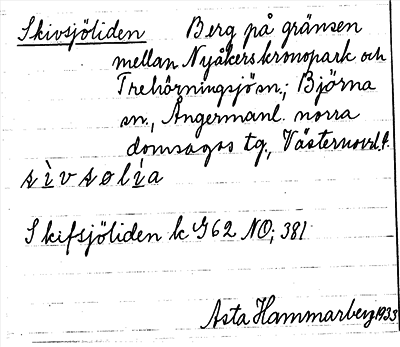 Skivsjöliden Berg på gränsen
mellan Nyåkers kronopark och
Trehörningsjö sn.; Björna
sn., Ångermanl. norra
domsagas tg., Västernorrl. l.
sìvsølìa
Skifsjöliden k G62 NO; 381
Asta Hammarberg 1933